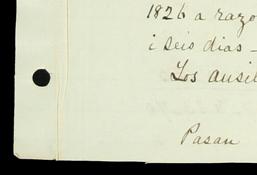 1826 a razo
i seis dias -
Los ausil
Pasan